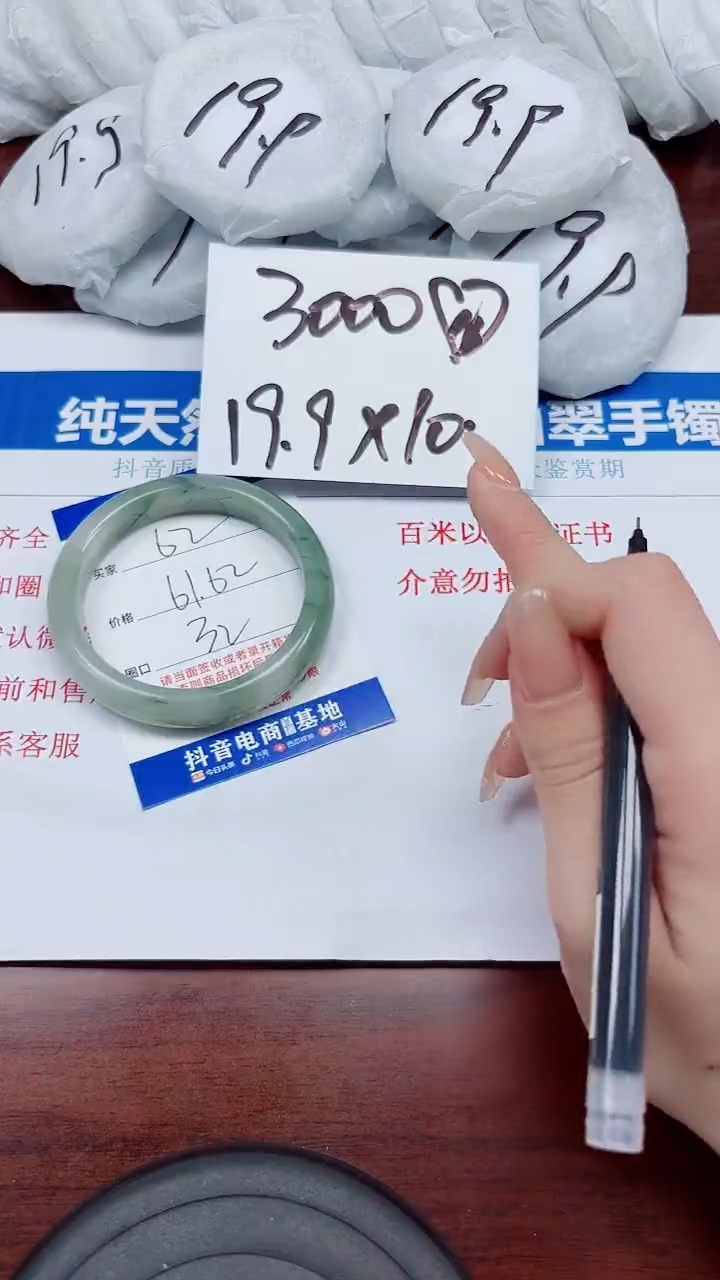 19.9
19.9
19.9
19.9
3000
19.9×10
纯天然
翡翠手镯
抖音质
鉴赏期
齐全
百米以
证书
和圈
介意勿拍
默认微
前和售
系客服
买家 62
价格 61.62
圈口 32
请当面签收或者录开箱
否则商品损坏后
抖音电商直播基地
今日头条 抖音 西瓜视频 火山